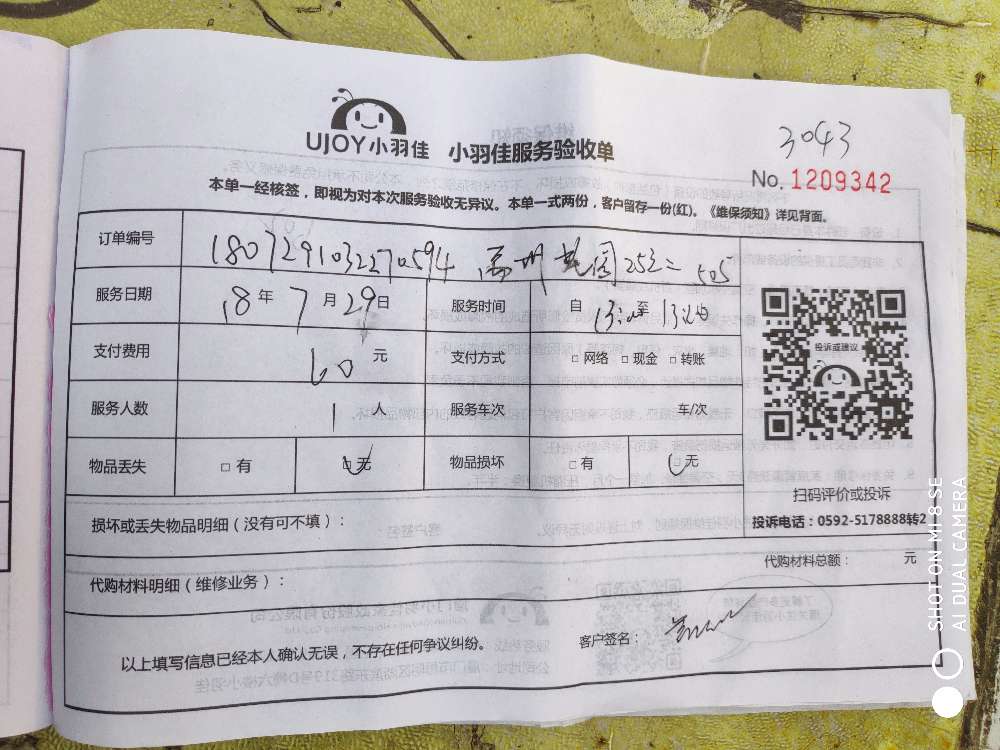 3043
UJOY小羽佳 小羽佳服务验收单
No. 1209342
本单一经核签，即视为对本次服务验收无异议。本单一式两份，客户留存一份(红)。《维保须知》详见背面。
订单编号 1807291032270594 25 505
服务日期 18年7月29日 服务时间 自13:00至13:20
支付费用 60元 支付方式 □网络 □现金 □转账
服务人数 1人 服务车次 车/次
物品丢失 □有 □无 物品损坏 □有 □无
投诉或建议
扫码评价或投诉
投诉电话：0592-5178888转2
损坏或丢失物品明细（没有可不填）：
代购材料明细（维修业务）：
代购材料总额： 元
以上填写信息已经本人确认无误，不存在任何争议纠纷。
客户签名：
SHOT ON MI 8 SE
AI DUAL CAMERA